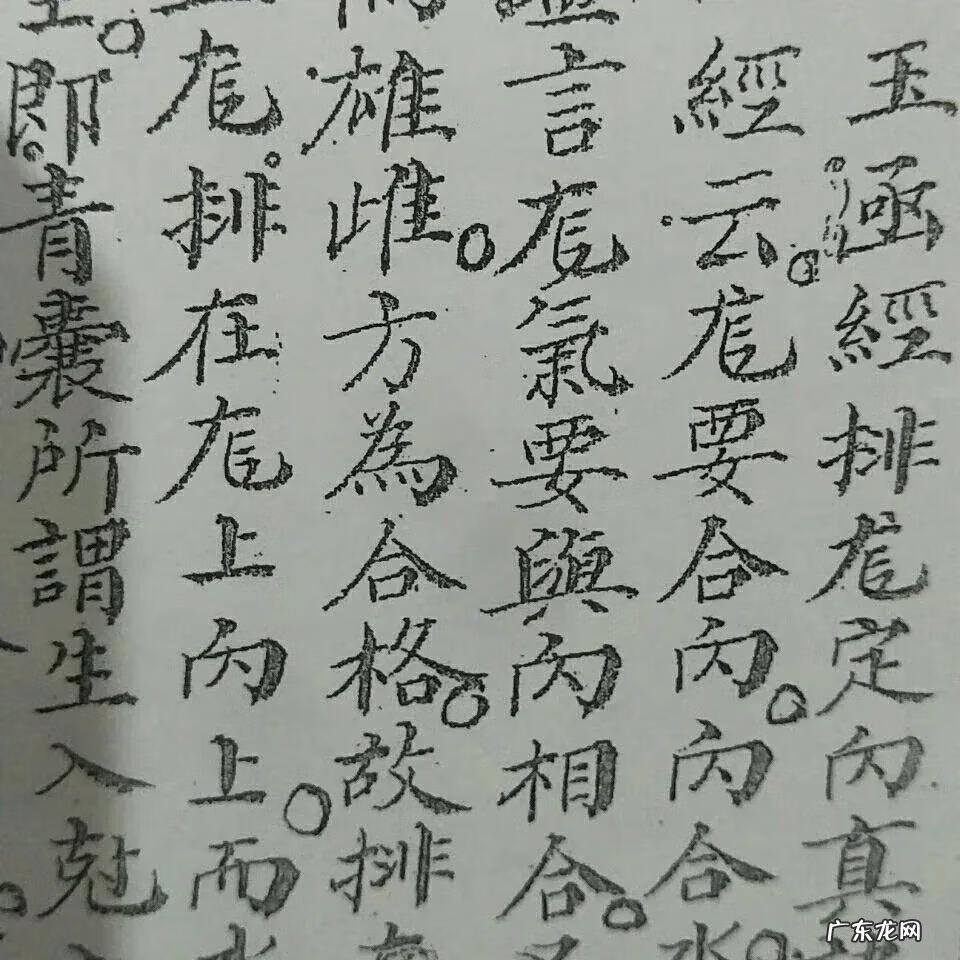 玉函經排龙定向真
經云。龙要合向。向合水。
言龙氣要與向相合。
雄雌。方為合格。故排
龙。排在龙上向上。而
。即青囊所謂生入尅
广东龙网